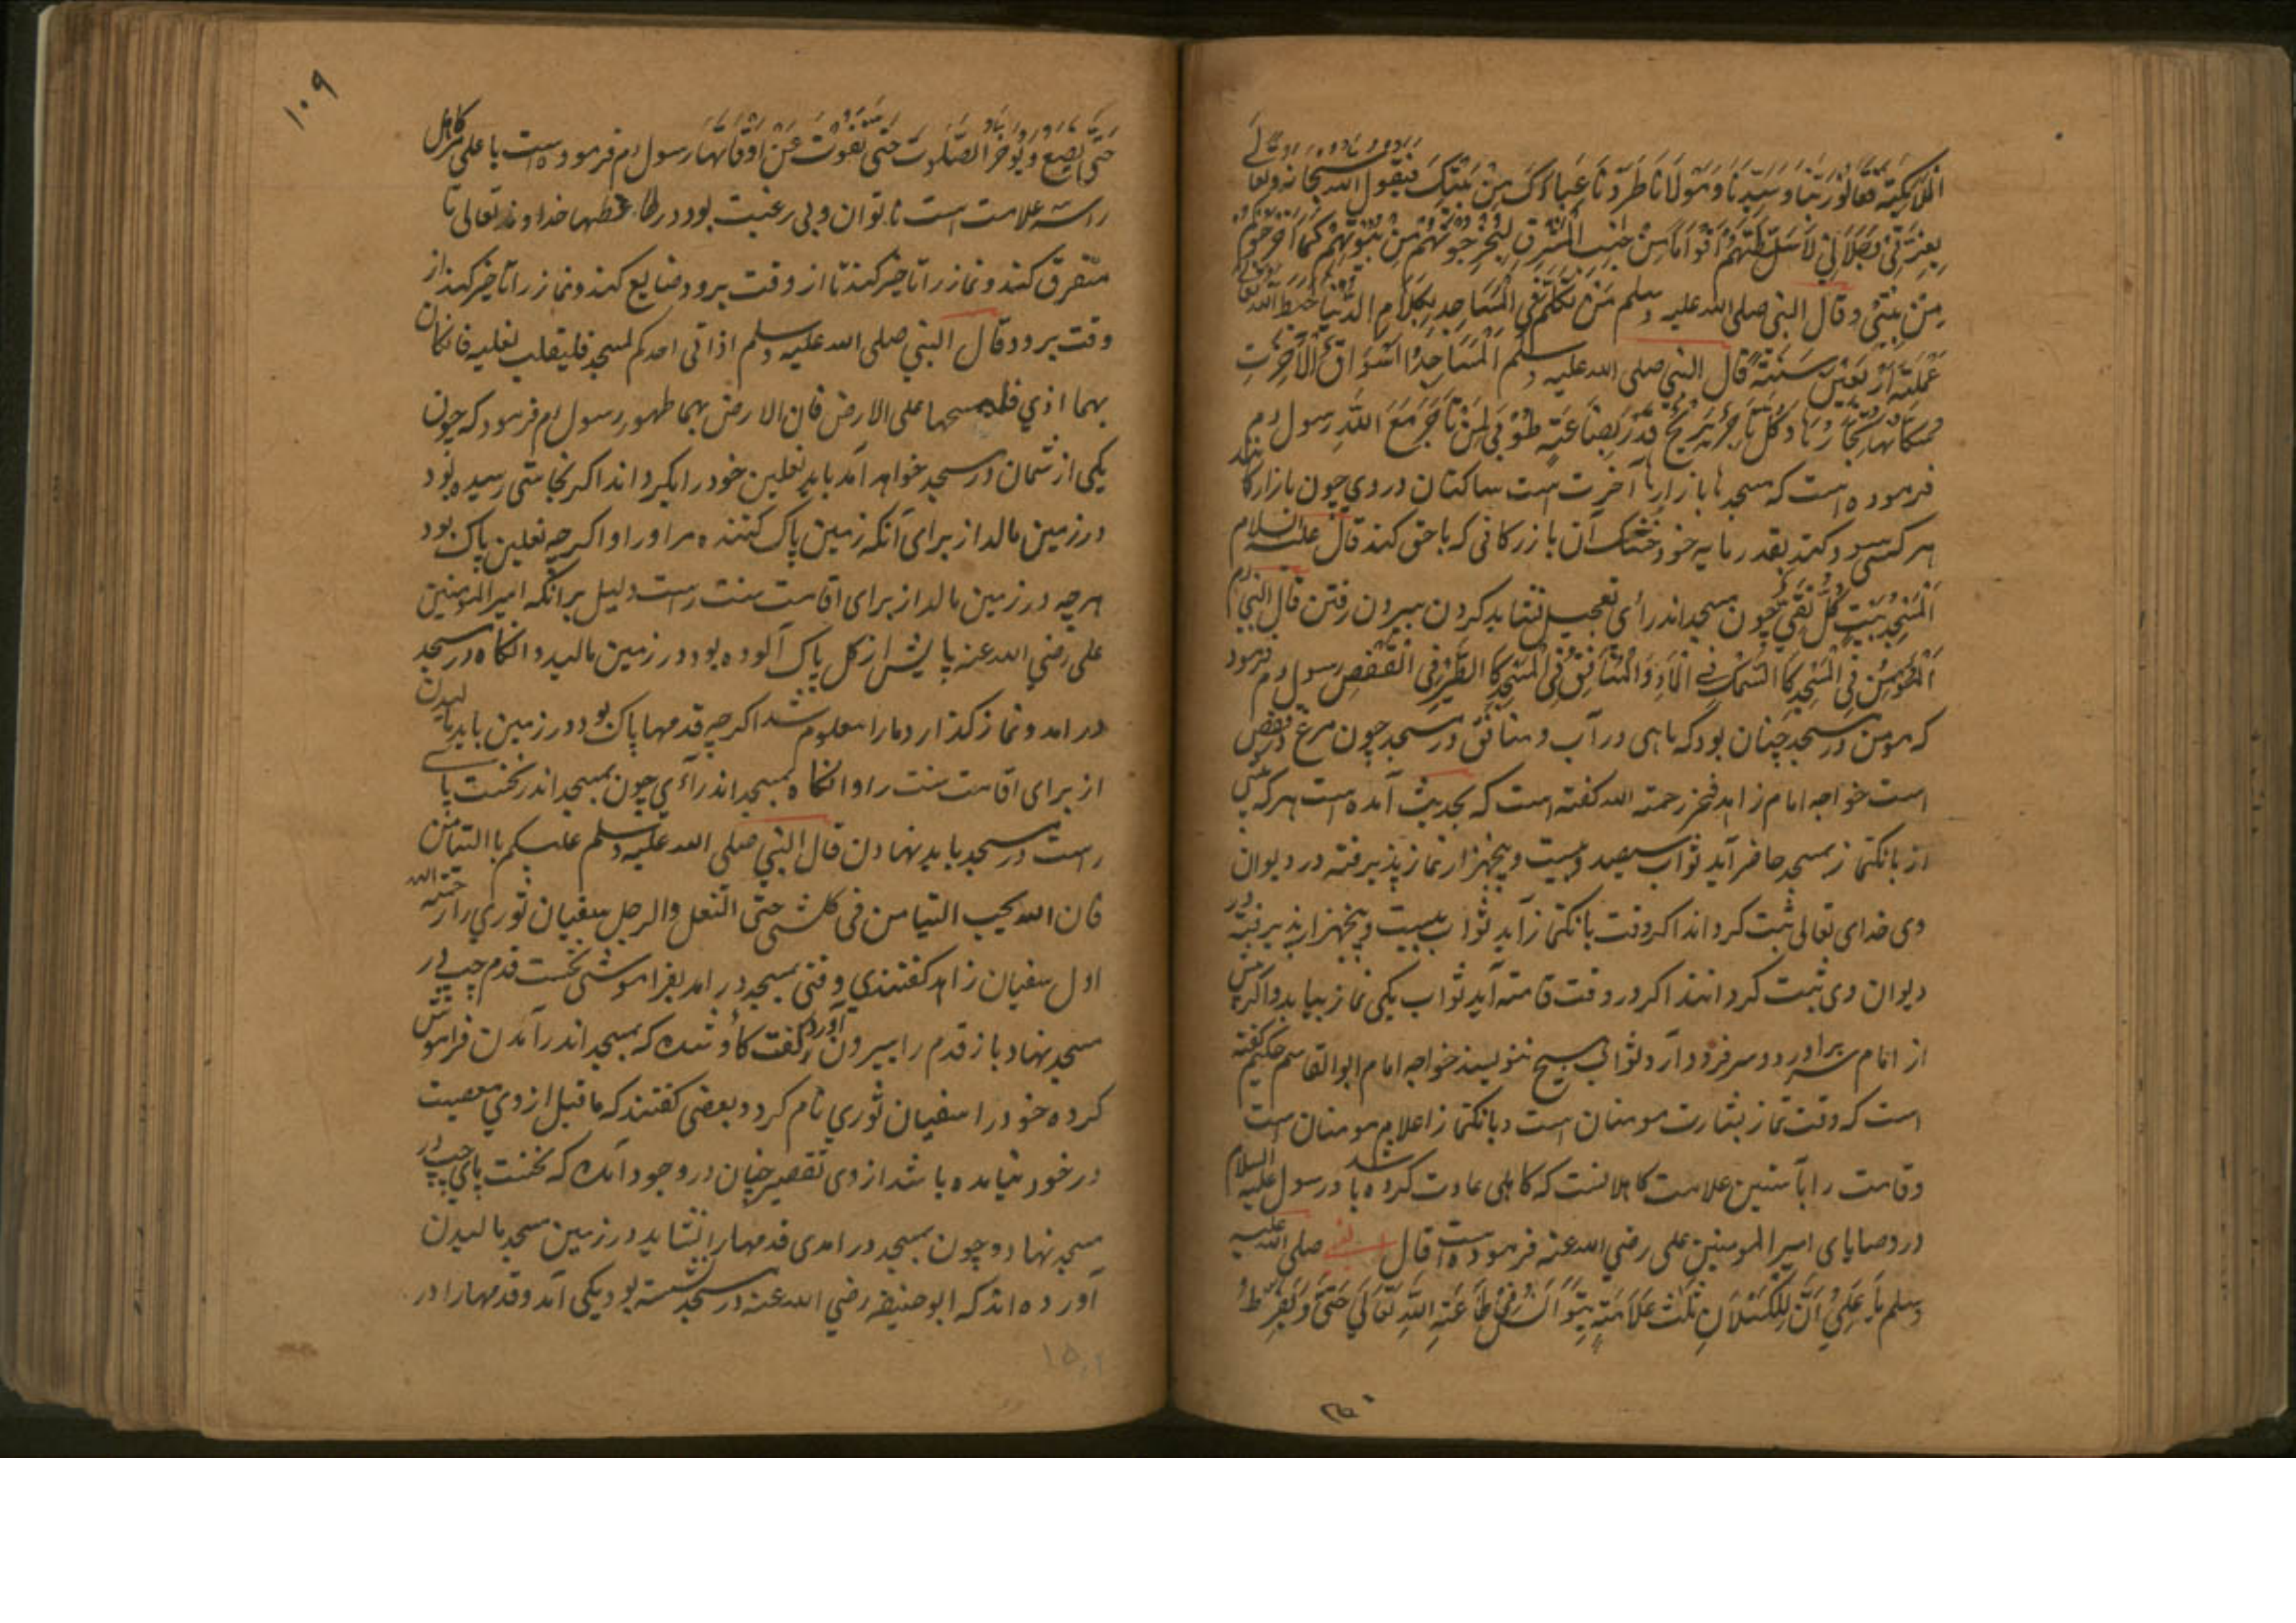 الملائكة فقالو ربنا و سيدنا و مولانا طردنا عبادك من بيتك فيقول الله سبحانه وتعالى
بعزتي و جلالي لاسلطنهم اقواما من جانب المشرق ليخرجونهم من بيوتهم كما اخرجوكم
من بيتي و قال النبي صلى الله عليه وسلم من تكلم في المساجد بكلام الدنيا حبط الله تعالى
عمله اربعين سنة قال النبي صلى الله عليه وسلم المساجد اسواق الآخرت
و سكانها تجارها و كل تاجر يربح قدر بضاعته طوبى لمن تاجر مع الله رسول م
فرموده است كه مسجدها بازارها آخرت است ساكنان در وي چون بازاركانند
هر كسي سود كند بقدر مايه خود خنك آن بازركاني كه باحق كند قال عليه السلام
المسجد بيت كل تقي چون بمسجد اندر آئي تعجيل نشايد كردن بيرون رفتن قال النبي م
المؤمن في المسجد كا السمك في الماء و المنافق في المسجد كا الطير في القفص رسول م فرمود
كه مومن در مسجد چنان بود كه ماهى در آب و منافق در مسجد چون مرغ در قفص
است خواجه امام زاهد فخر رحمته الله كفته است كه بحديث آمده است هر كه پيش
از بانكنماز بمسجد حاضر آيد ثواب سيصد و بيست و پنجهزار نماز پذيرفته در ديوان
وى خداى تعالى ثبت كرداند اكر وقت بانكنماز آيد ثواب بيست و پنجهزار پذيرفته در
ديوان وى ثبت كردانند اكر در وقت قامته آيد ثواب يكى نماز بيابد و اكر پيش
از امام سر برآورد و سر فرود آرد ثوابى هيچ ننويسند خواجه امام ابو القاسم حكيم كفته
است كه وقت نماز بشارت مومنان است و بانكنماز اعلام مومنان است
و قامت را بآستين علامت كاهلانست كه كاهلى عادت كرده باشد و رسول عليه السلام
در وصاياى امير المومنين على رضي الله عنه فرموده است قال النبي صلى الله عليه
وسلم يا علي ان للكسلان ثلث علامة يتوانى في طاعة الله تعالى حتى و يفرط
۱۰۹
حتى يضيع و يوخر الصلوت حتى تفوت عن اوقاتها رسول م فرموده است يا على مر كاهل
را سه علامت است ناتوان و بى رغبت بود در خداوند تعالى تا
متفرق كند و نماز را تاخير كند تا از وقت برود ضايع كند و نماز را تاخير كند از
وقت برود قال النبي صلى الله عليه وسلم اذا اتى احدكم لمسجد فليقلب نعليه فانكان
بهما اذي فليمسحها على الارض فان الارض بهما طهور رسول م فرمود كه چون
يكى از شمان در مسجد خواهد آمد بايد نعلين خود را بكرداند اكر نجاستى رسيده بود
در زمين مالد از براى آنكه زمين پاك كننده مر او را و اكر چه نعلين پاك بود
هر چه در زمين مالد از براى اقامت سنت راست دليل بر انكه امير المومنين
على رضي الله عنه پايش از كل پاك آلوده بود در زمين ماليد و انكاه در مسجد
در امد و نماز كذارد ما را معلوم شد اكر چه قدمها پاك بود در زمين بايد ماليدن
از براى اقامت سنت را و انكاه بمسجد اندر آئي چون بمسجد اندر نخست پاى
راست در مسجد بايد نهادن قال النبي صلى الله عليه وسلم عليكم با التيامن
فان الله يحب التيامن فى كل شى حتى النعل و الرجل سفيان ثوري را رحمته الله
اول سفيان زاهد كفتندي وقتى بمسجد در امد بفراموشى نخست قدم چپ در
مسجد نهاد باز قدم را بيرون آورد كفت كاو شده كه بمسجد اندر آمدن فراموش
كرده خود را سفيان ثوري نام كرد و بعضى كفتند كه ماقبل از وي معصيت
در خود نيامده باشد از وى تقصير چنان در وجود آمده كه نخست پاي چپ در
مسجد نهاد و چون بمسجد در امدى قدمها را نشايد در زمين مسجد ماليدن
آورده اند كه ابو حنيفه رضي الله عنه در مسجد نشسته بود يكى آمد و قدمها را در